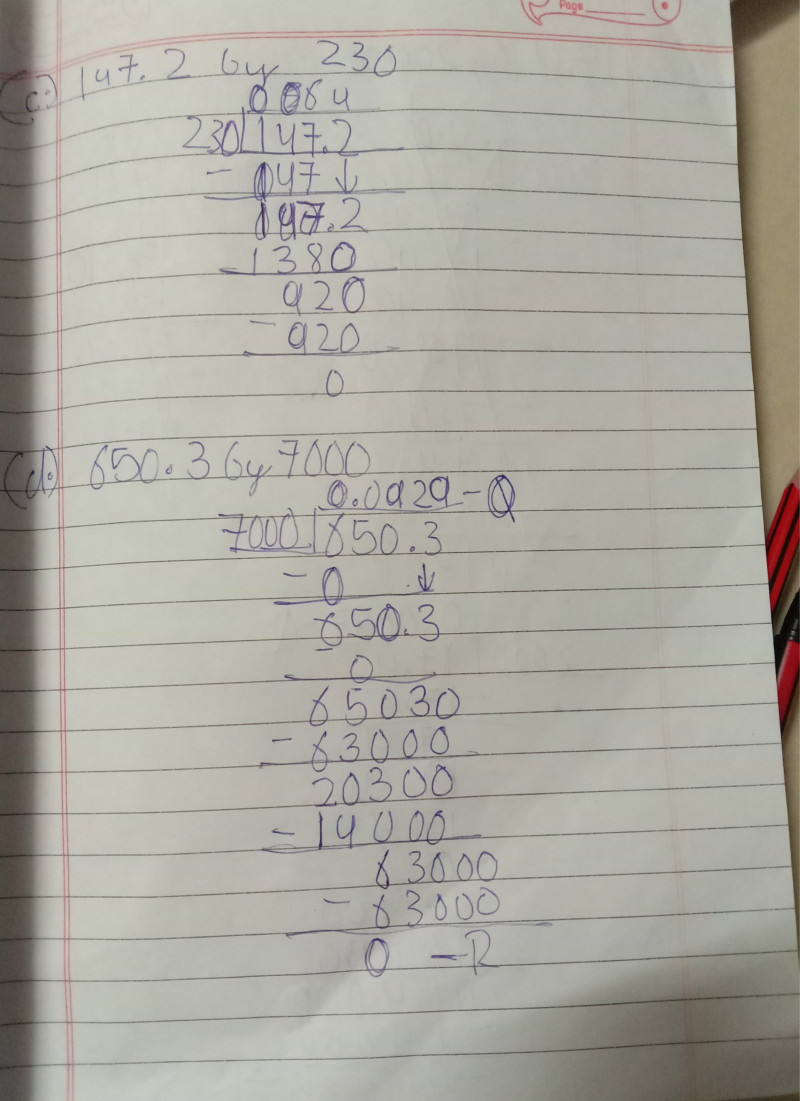 Page
(c) 147.2 by 230
0 064
230 147.2
- 047 ↓
147.2
- 1380
920
- 920
0
(d) 650.3 by 7000
0.0929 - Q
7000 650.3
- 0 ↓
650.3
0
65030
- 63000
20300
- 14000
63000
- 63000
0 - R